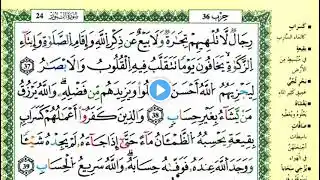 حِزْب 36
سُورَةُ النُّورِ 24
رِجَالٌ لَّا تُلْهِيهِمْ تِجَٰرَةٌ وَلَا بَيْعٌ عَن ذِكْرِ اللَّهِ وَإِقَامِ الصَّلَوٰةِ وَإِيتَآءِ
الزَّكَوٰةِ يَخَافُونَ يَوْمًا تَتَقَلَّبُ فِيهِ الْقُلُوبُ وَالْأَبْصَٰرُ 37
لِيَجْزِيَهُمُ اللَّهُ أَحْسَنَ وَيَزِيدَهُم مِّن فَضْلِهِۦ وَاللَّهُ يَرْزُقُ
مَن يَشَآءُ بِغَيْرِ حِسَابٍ 38 وَالَّذِينَ كَفَرُوٓا أَعْمَٰلُهُمْ كَسَرَابٍ
بِقِيعَةٍ يَحْسَبُهُ الظَّمْـَٔانُ مَآءً حَتَّىٰٓ إِذَا جَآءَهُۥ لَمْ يَجِدْهُ شَيْـًٔا
وَوَجَدَ اللَّهَ عِندَهُۥ فَوَفَّىٰهُ حِسَابَهُۥ وَاللَّهُ سَرِيعُ الْحِسَابِ 39
كَسَرَابٍ
بِقِيعَةٍ
بَحْرٍ لُّجِّيٍّ
يَغْشَاهُ
صَافَّاتٍ